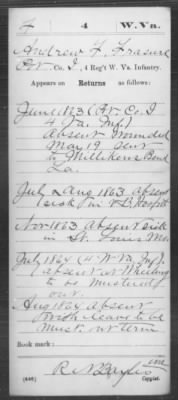 F 4 W.Va.
Andrew F. Frasure
Pvt., Co. I, 4 Reg't W. Va. Infantry.
Appears on
Returns as follows:
June 1863 (Pvt. Co. I
4 Va. Inf.)
Absent Wounded
May 19 sent
to Millikens Bend
La.
July & Aug 1863 Absent
sick in V.B. Hospitl
Nov 1863 Absent Sick
in St. Louis Mo
July 1864 (4 W Va Inf.)
absent at Wheeling
to be mustered
out.
Aug 1864 absent
with leave to be
Must. out term
Book mark:
(546) Copyist.